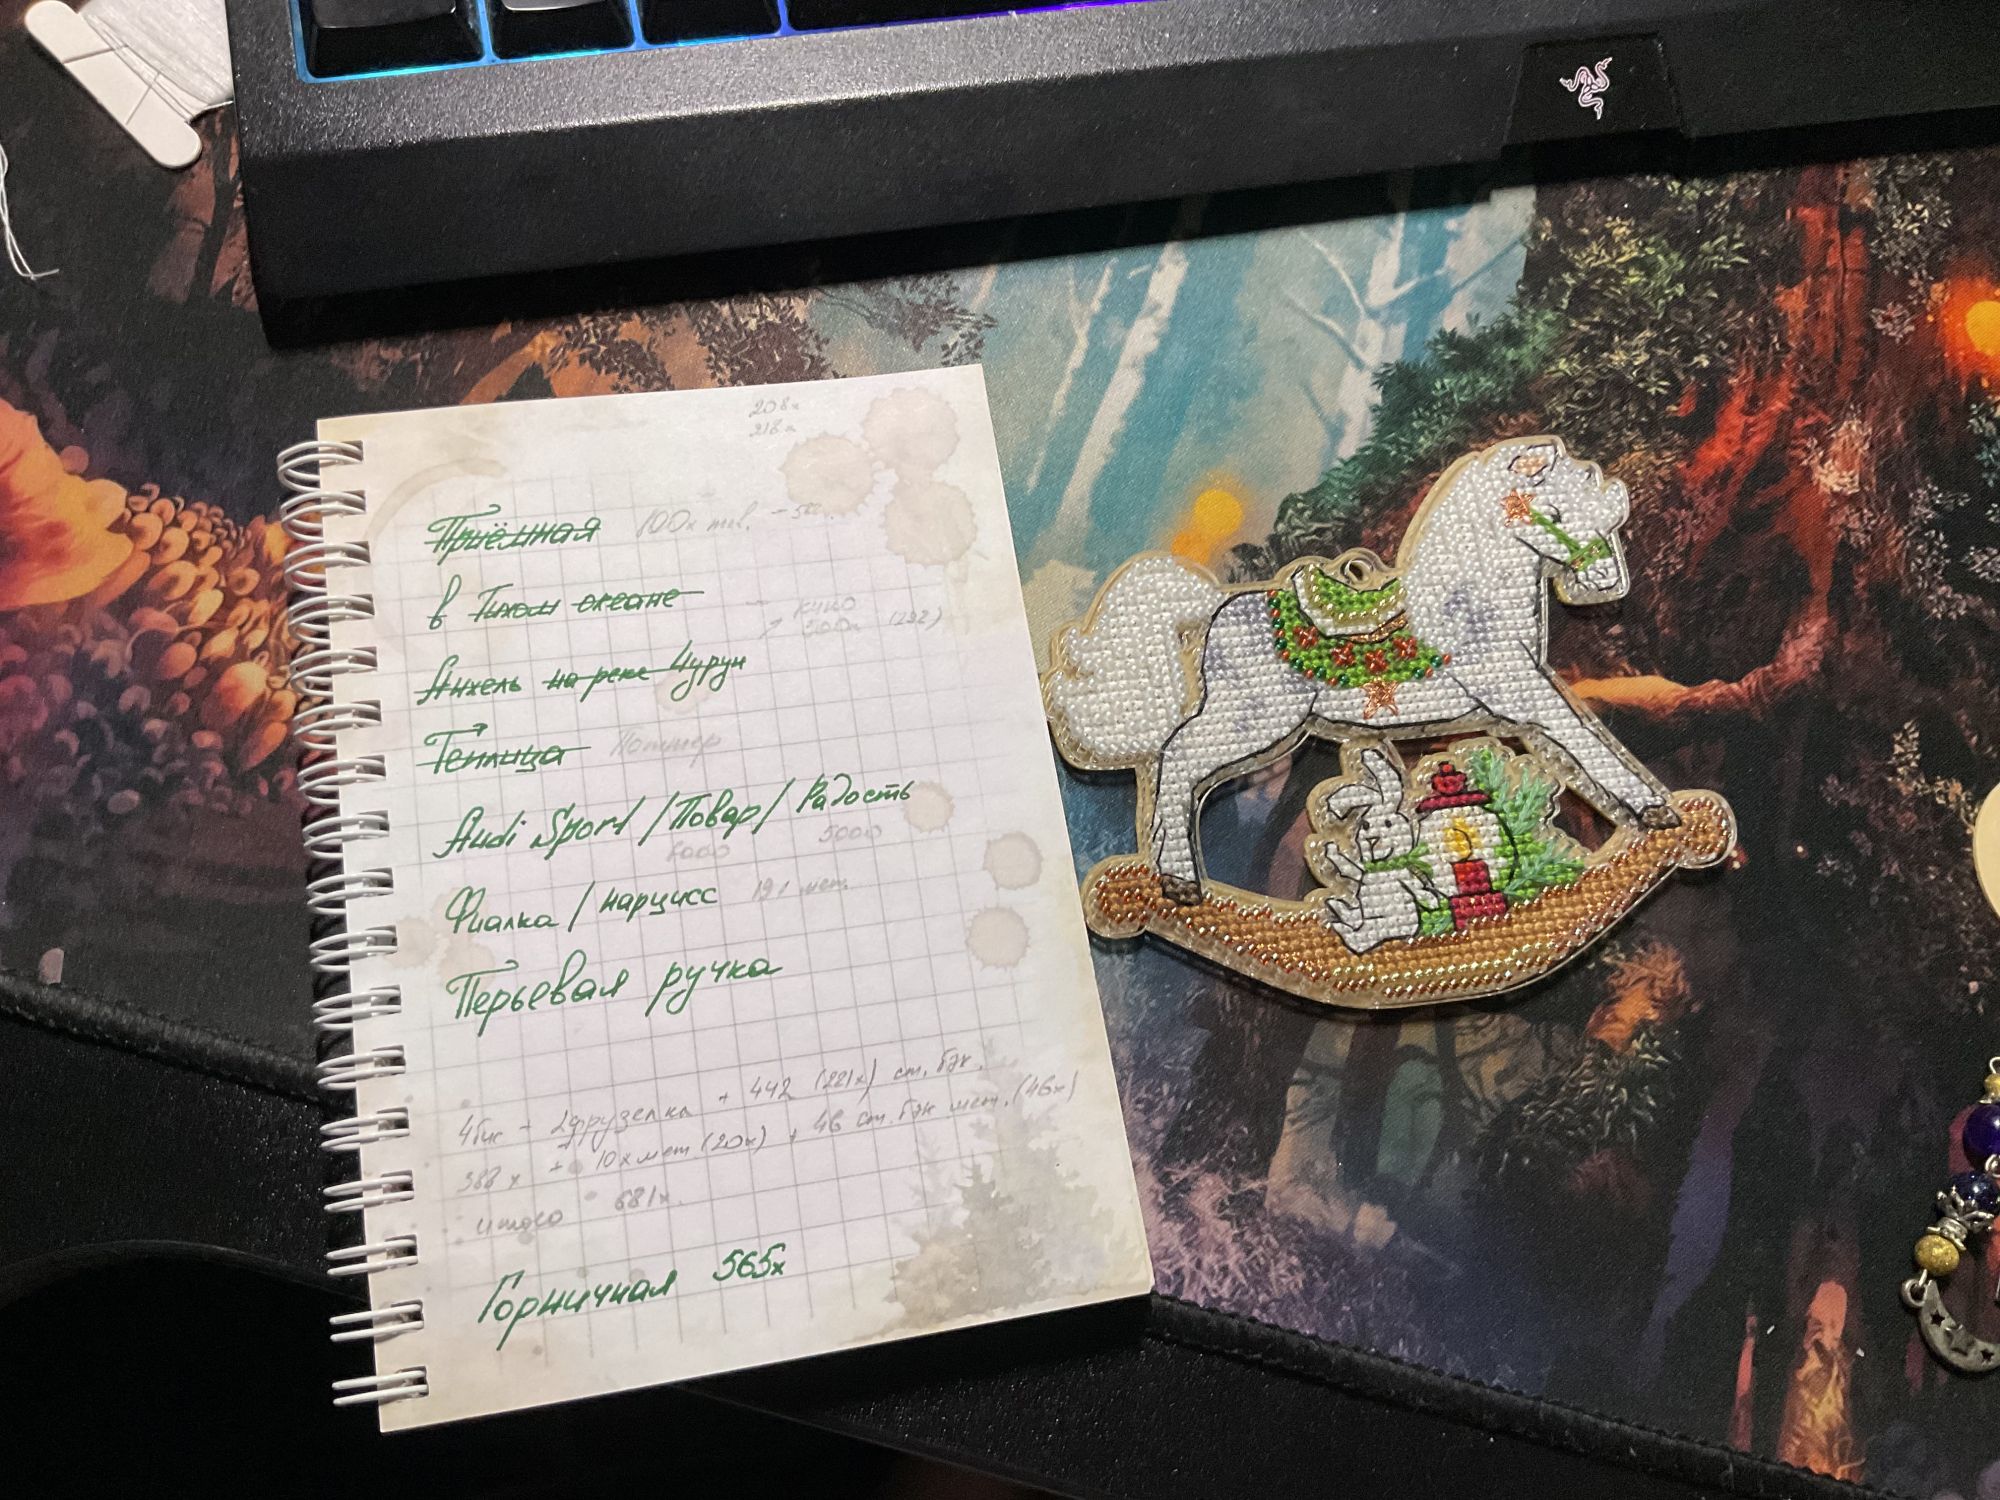 208х
218х
Приёмная 100х мет.
в Тихом океане
кино
200х (232)
Анхель на реке Чурун
Теплица Поттер
Audi Sport / Повар / Радость
6000 5000
Фиалка / нарцисс 191 мет.
Перьевая ручка
4бис + 2 + 442 (221х) ст. бэк.
368 х + 10х мет (20х) + 46 ст. бэк мет. (46х)
итого 681х.
Горничная 565х